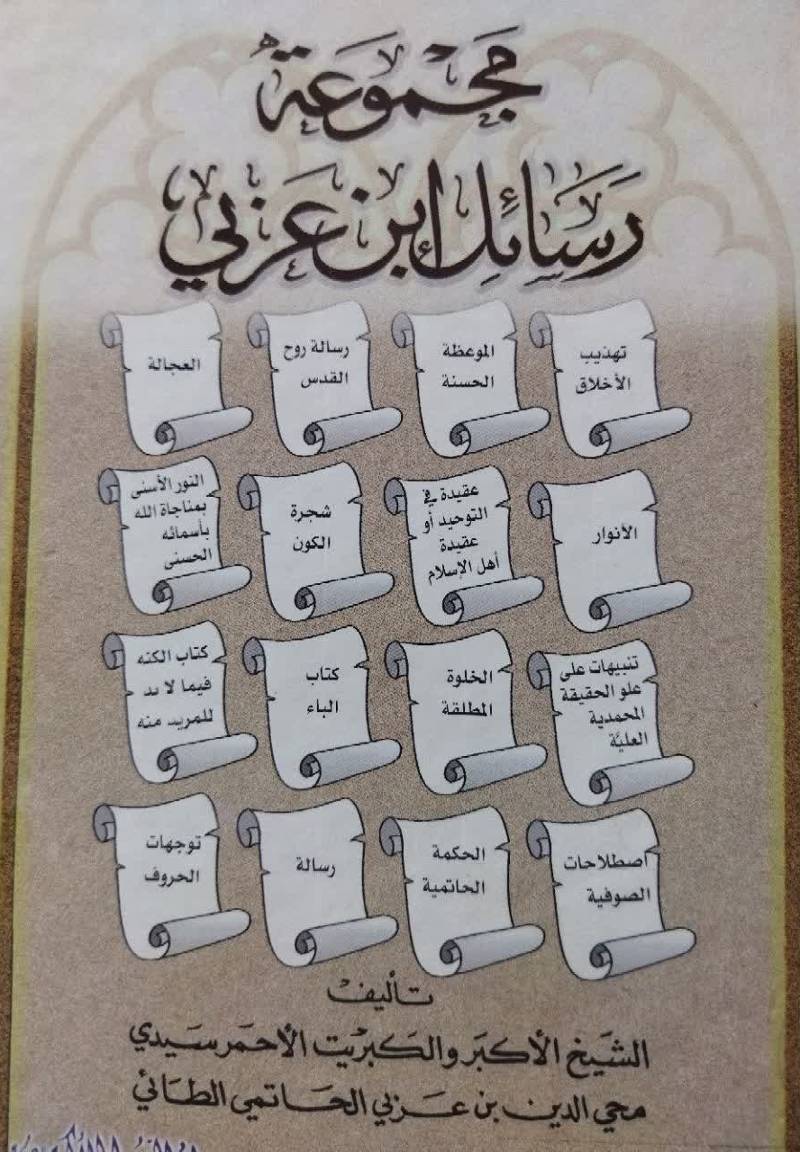 مجموعة
رسائل ابن عربي
تهذيب
الأخلاق
الموعظة
الحسنة
رسالة روح
القدس
العجالة
الأنوار
عقيدة في
التوحيد أو
عقيدة
أهل الإسلام
شجرة
الكون
النور الأسنى
بمناجاة الله
بأسمائه
الحسنى
تنبيهات على
علو الحقيقة
المحمدية
العليَّة
الخلوة
المطلقة
كتاب
الباء
كتاب الكنه
فيما لا بد
للمريد منه
اصطلاحات
الصوفية
الحكمة
الحاتمية
رسالة
توجهات
الحروف
تأليف
الشيخ الأكبر والكبريت الأحمر سيدي
محي الدين بن عربي الحاتمي الطائي